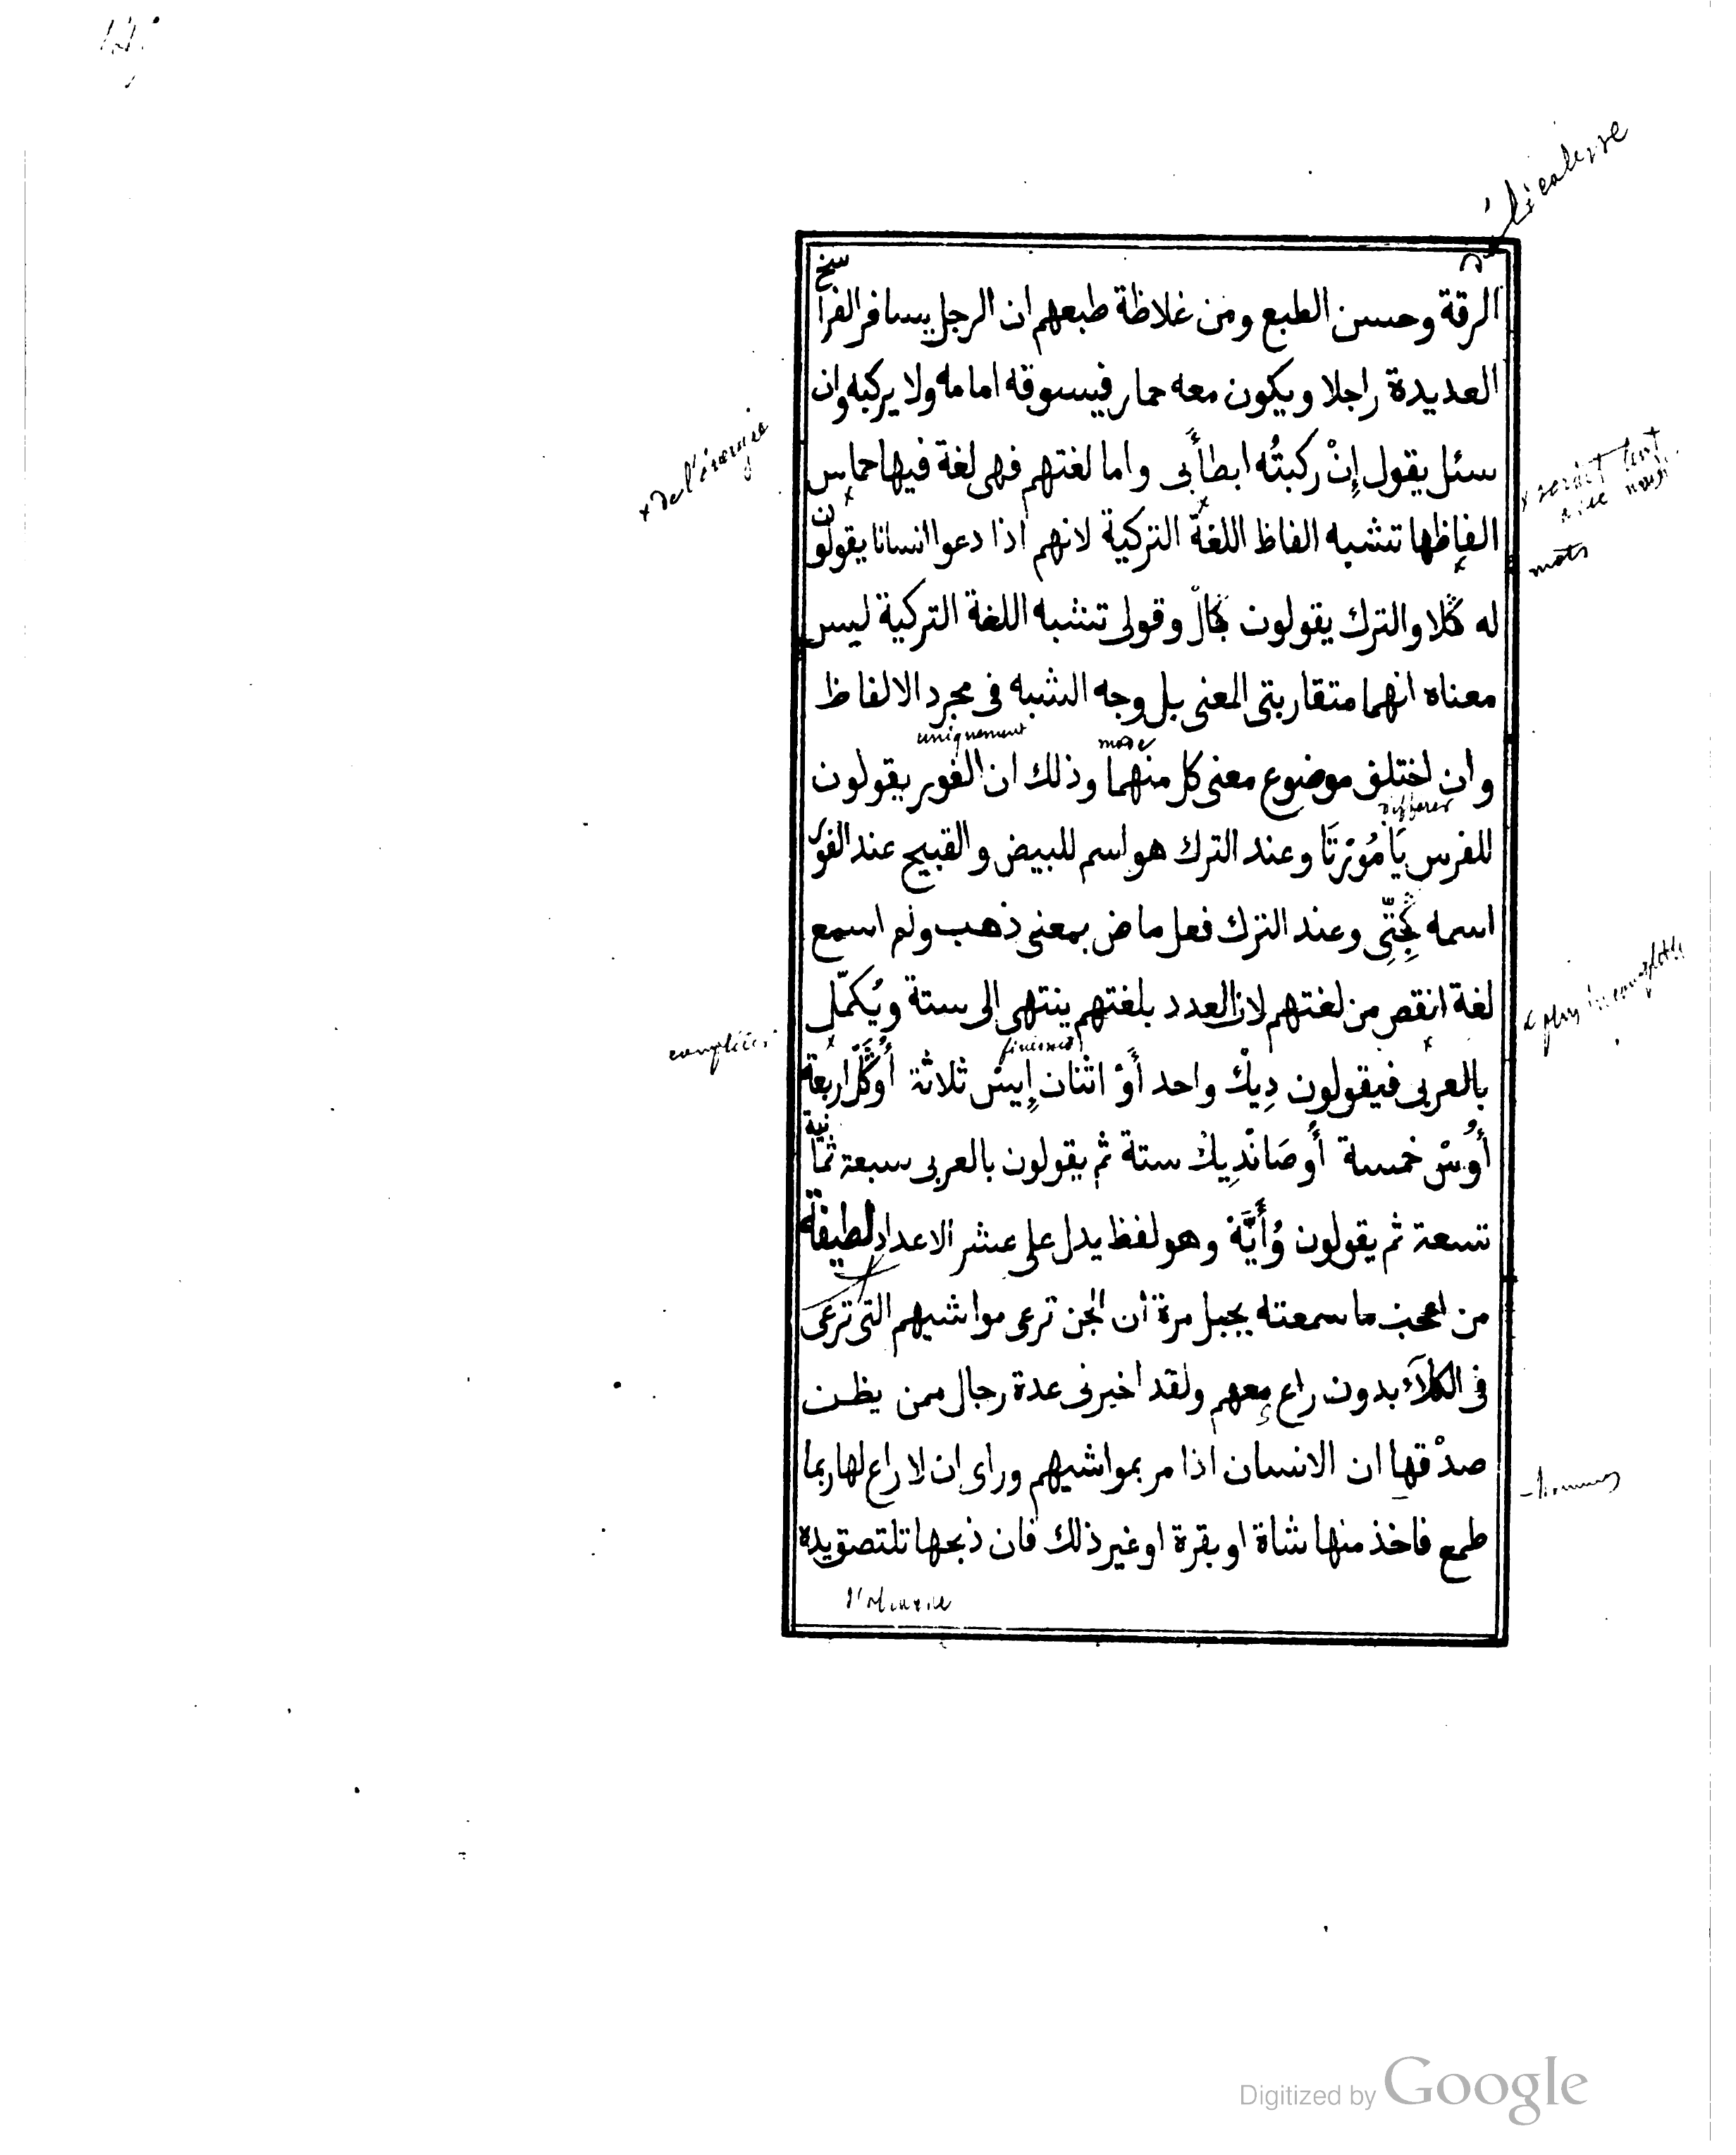 الرقة وحسن الطبع ومن غلاظة طبعهم ان الرجل يسافر الفراسخ
العديدة راجلا ويكون معه حمار فيسوقه امامه ولا يركبه وان
سئل يقول إِنْ ركبتُه ابطأَبى واما لغتهم فهى لغة فيها حماس
الفاظها تشبه الفاظ اللغة التركية لانهم اذا دعوا انسانا يقولون
له كَلا والترك يقولون كَالْ وقولى تشبه اللغة التركية ليس
معناه انهما متقاربتى المعنى بل وجه الشبه فى مجرد الالفاظ
uniquement mode
وان اختلف موضوع معنى كل منهما وذلك ان الفور يقولون
differer
للفرس يَامُوْرتَا وعند الترك هو اسم للبيض والقبيح عند الفور
اسمه كِجِتِّى وعند الترك فعل ماض بمعنى ذهب ولم اسمع
لغة انقص من لغتهم لان العدد بلغتهم ينتهى الى ستة ويُكمّل
بالعربى فيقولون دِيكْ واحد أَوْ اثنان إِيِسْ ثلاثة أُوَنْكَلْ اربعة
أُوسْ خمسة أُوصَانْدِيكْ ستة ثم يقولون بالعربى سبعة ثمانية
تسعة ثم يقولون وُأَيَّهْ وهو لفظ يدل على عشر الاعداد لطيفة
من اعجب ما سمعته بجبل مرة ان الجن ترعى مواشيهم التى ترعى
فى الكلآء بدون راع معهم ولقد اخبرنى عدة رجال ممن يظن
صدْقها ان الانسان اذا مر بمواشيهم وراى ان لا راع لها ربما
طمع فاخذ منها شاة او بقرة او غير ذلك فان ذبحها تلتصق يده
de l'énergie
mots
Digitized by Google